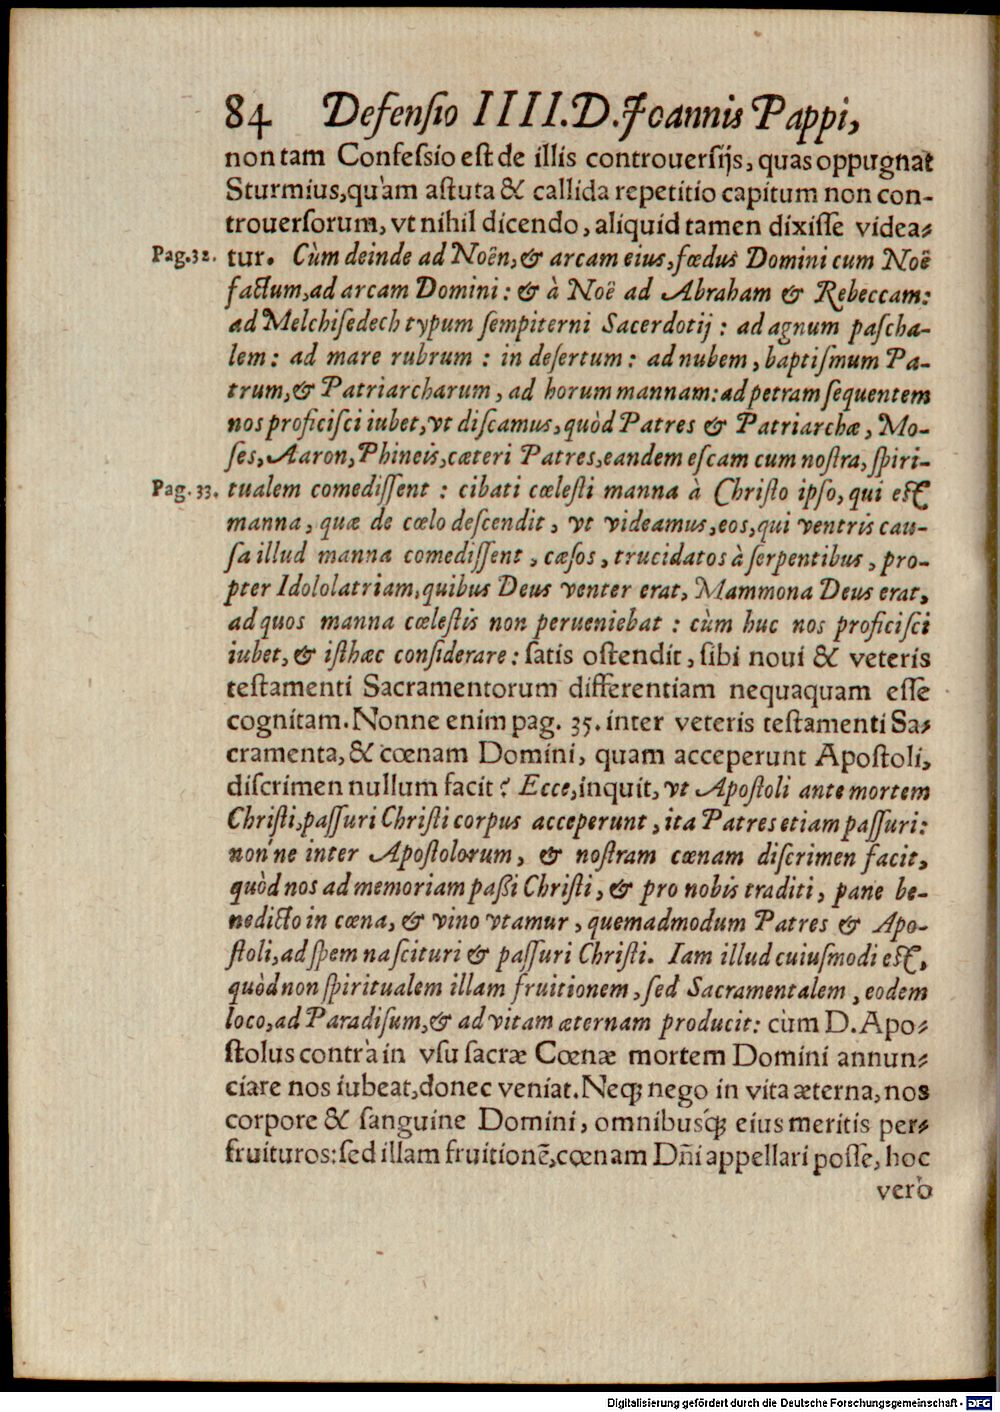 84 Defensio IIII. D. Joannis Pappi,
non tam Confeſsio eſt de illis controuerſijs, quas oppugnat
Sturmius, quàm aſtuta & callida repetitio capitum non con-
trouerſorum, vt nihil dicendo, aliquid tamen dixiſſe videa-
Pag. 32. tur. Cùm deinde ad Noën, & arcam eius, fœdus Domini cum Noë
factum, ad arcam Domini: & à Noë ad Abraham & Rebeccam:
ad Melchiſedech typum ſempiterni Sacerdotij: ad agnum paſcha-
lem: ad mare rubrum: in deſertum: ad nubem, baptiſmum Pa-
trum, & Patriarcharum, ad horum mannam: ad petram ſequentem
nos proficiſci iubet, vt diſcamus, quòd Patres & Patriarchæ, Mo-
ſes, Aaron, Phineis, cæteri Patres, eandem eſcam cum noſtra, ſpiri-
Pag. 33. tualem comediſſent: cibati cœleſti manna à Chriſto ipſo, qui eſt
manna, quæ de cœlo deſcendit, vt videamus, eos, qui ventris cau-
ſa illud manna comediſſent, cæſos, trucidatos à ſerpentibus, pro-
pter Idololatriam, quibus Deus venter erat, Mammona Deus erat,
ad quos manna cœleſtis non perueniebat: cùm huc nos proficiſci
iubet, & iſthæc conſiderare: ſatis oſtendit, ſibi noui & veteris
teſtamenti Sacramentorum differentiam nequaquam eſſe
cognitam. Nonne enim pag. 35. inter veteris teſtamenti Sa-
cramenta, & cœnam Domini, quam acceperunt Apoſtoli,
diſcrimen nullum facit? Ecce, inquit, vt Apoſtoli ante mortem
Chriſti, paſſuri Chriſti corpus acceperunt, ita Patres etiam paſſuri:
nonne inter Apoſtolorum, & noſtram cœnam diſcrimen facit,
quòd nos ad memoriam paßi Chriſti, & pro nobis traditi, pane be-
nedicto in cœna, & vino vtamur, quemadmodum Patres & Apo-
ſtoli, ad ſpem naſcituri & paſſuri Chriſti. Iam illud cuiuſmodi eſt,
quòd non ſpiritualem illam fruitionem, ſed Sacramentalem, eodem
loco, ad Paradiſum, & ad vitam æternam producit: cùm D. Apo-
ſtolus contrà in vſu ſacræ Cœnæ mortem Domini annun-
ciare nos iubeat, donec veniat. Neq; nego in vita æterna, nos
corpore & ſanguine Domini, omnibusq́; eius meritis per-
fruituros: ſed illam fruitionē, cœnam Dñi appellari poſſe, hoc
verò
Digitalisierung gefördert durch die Deutsche Forschungsgemeinschaft - DFG